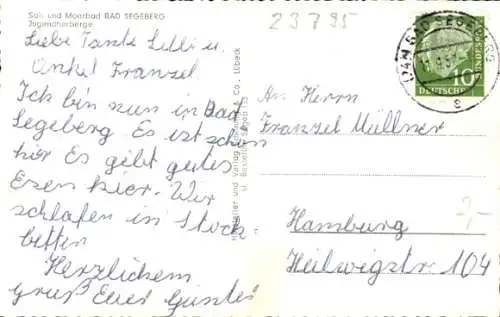 Sol- und Moorbad BAD SEGEBERG
Jugendherberge
23795
Liebe Tante Lilli u.
Onkel Franzel
Ich bin nun in Bad
Segeberg Es ist schön
hier Es gibt gutes
Essen hier. Wir
schlafen in Stock-
betten
Herzlichem
Gruß Euer Günter
An Herrn
Franzel Müllner
Hamburg
Heilwigstr 104
2,-
BAD SEGEBERG
10
DEUTSCHE BUNDESPOST
Hersteller und Verlag & Co., Lübeck